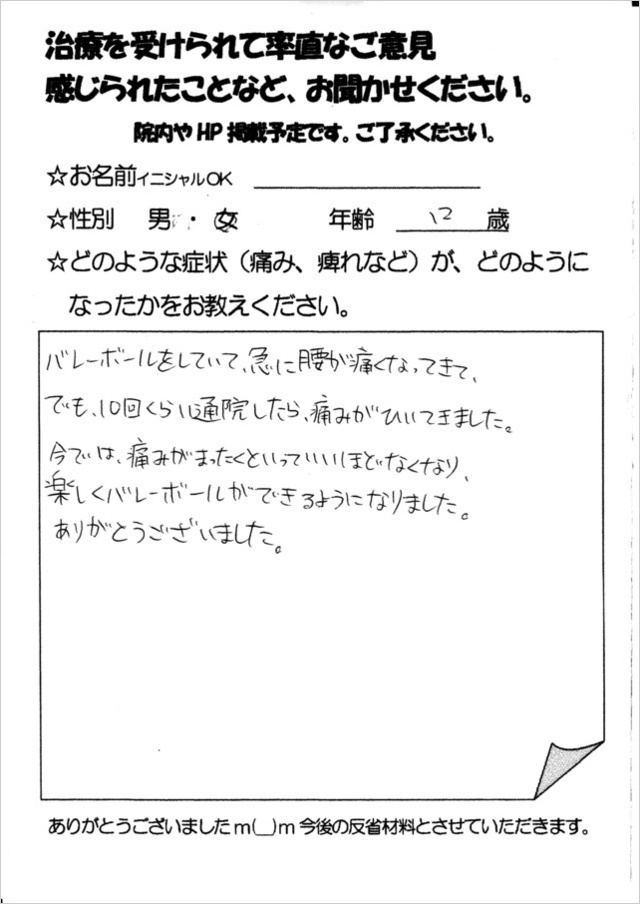 治療を受けられて率直なご意見
感じられたことなど、お聞かせください。
院内やHP掲載予定です。ご了承ください。
☆お名前イニシャルOK
☆性別 男・女 年齢 12 歳
☆どのような症状（痛み、痺れなど）が、どのように
なったかをお教えください。
バレーボールをしていて、急に腰が痛くなってきて、
でも、10回くらい通院したら、痛みがひいてきました。
今では、痛みがまったくといっていいほどなくなり、
楽しくバレーボールができるようになりました。
ありがとうございました。
ありがとうございましたm(__)m今後の反省材料とさせていただきます。